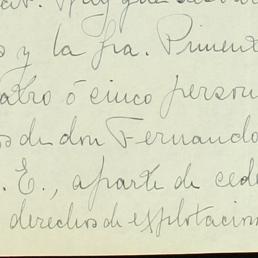 s y la fra. Piment
atro ó cinco person
os de don Fernando
. E., aparte de cede
derechos de explotacion